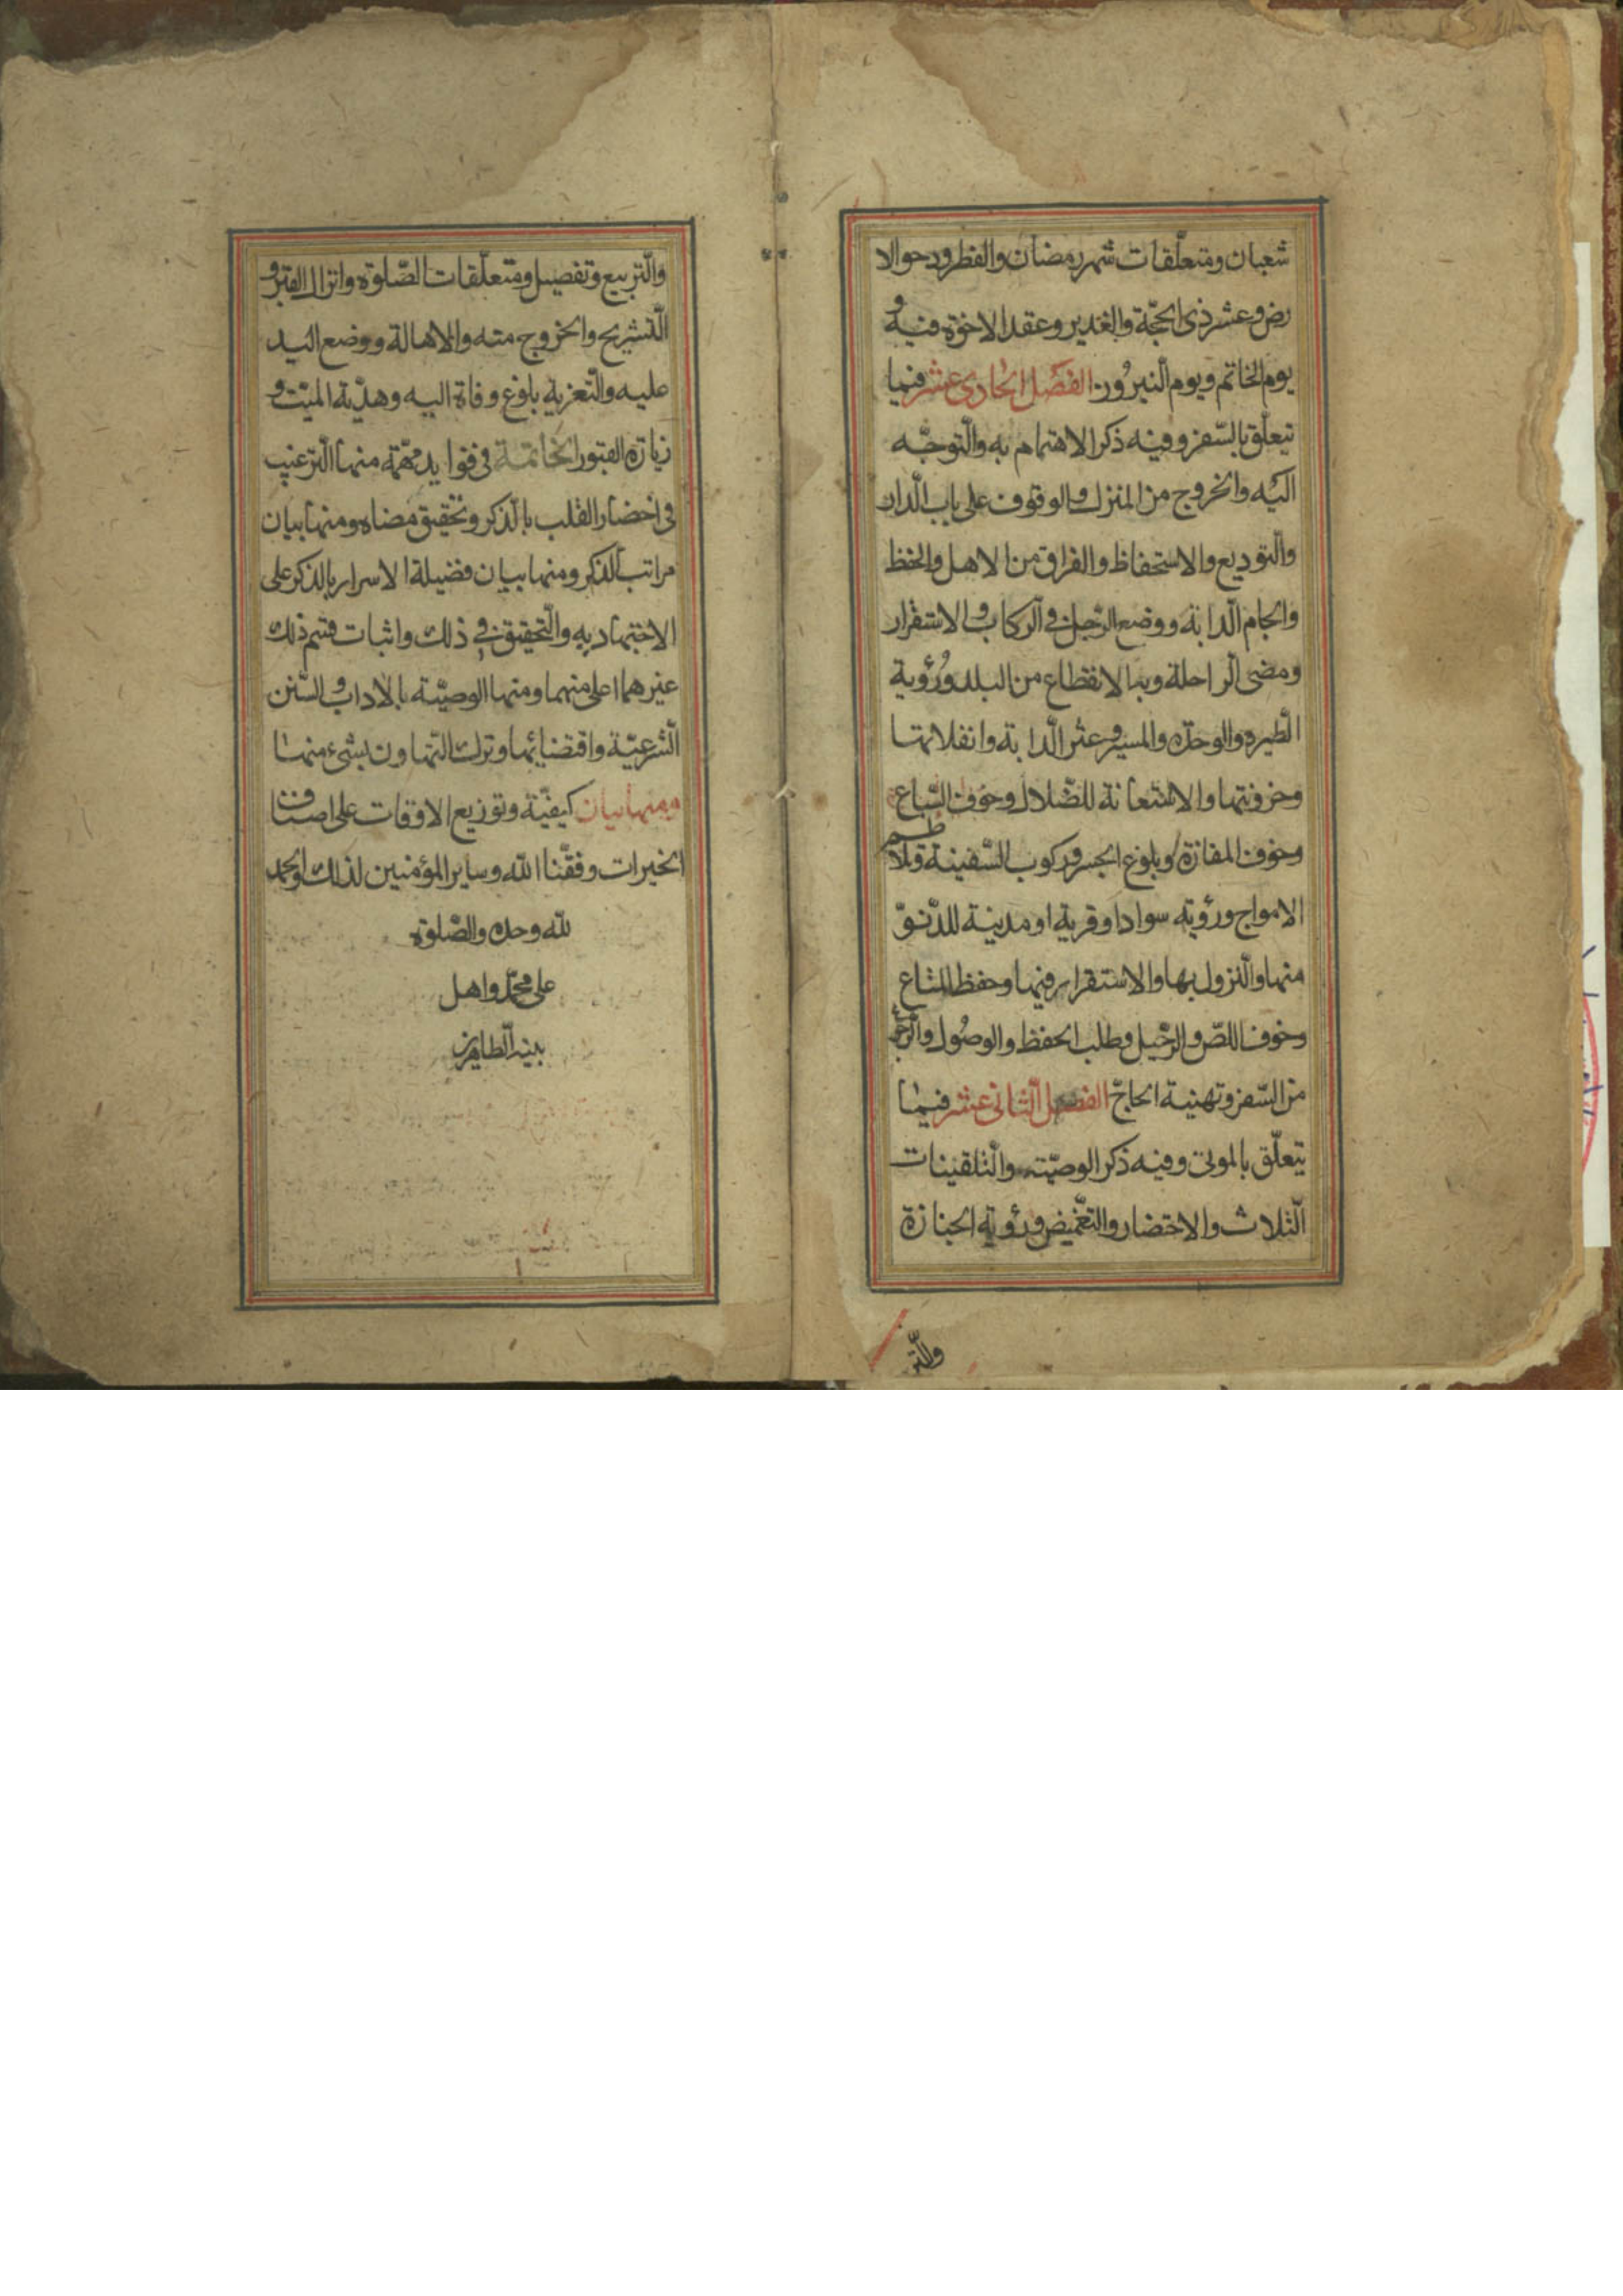 شعبان ومتعلّقات شهر رمضان والفطر ودحو الا
رض وعشر ذى الحجّة والغدير وعقد الاخوّة فيه و
يوم الخاتم ويوم النيروز الفصل الحادى عشر فيما
يتعلّق بالسّفر وفيه ذكر الاهتمام به والتّوجّه
اليه والخروج من المنزل والوقوف على باب الدّار
والتّوديع والاستحفاظ والفراق من الاهل والحفظ
والجام الدّابة ووضع الرّجل فى الرّكاب والاستقرار
ومضى الرّاحلة وبنا الانقطاع من البلد ورُؤية
الطّيره والوحدة والمسير وعثر الدّابة وانفلاتها
وحزونتها والاستعانة للضّلال وخوف السّباع
وخوف المفازة وبلوغ الجسر وركوب السّفينة وتلاطم
الامواج ورؤية سوادا وقرية او مدينة للدّنوّ
منها والنّزول بها والاستقرار فيها وحفظ المتاع
وخوف اللصّ والرّحيل وطلب الحفظ والوصُول والرّجو
من السّفر وتهنية الحاجّ الفصل الثّانى عشر فيما
يتعلّق بالموتى وفيه ذكر الوصيّته والتّلقينات
الثّلاث والاحتضار والتغميض ورؤية الجنازة
والتر
والتّربيع وتفصيل ومتعلّقات الصّلوة وانزال القبر و
التّشريح والخروج منه والاهالة ووضع اليد
عليه والتّعزية بلوغ وفاة اليه وهديّة الميّت و
زيارة القبور الخاتمة فى فوايد مهمّة منها التّرغيب
فى احضار القلب بالذّكر وتحقيق مضاه ومنها بيان
مراتب الذّكر ومنها بيان فضيلة الاسرار بالذكر على
الاجتهاد به والتّحقيق فى ذلك واثبات قسم ذلك
غيرهما اعلى منهما ومنها الوصيّة بالاداب والسّنن
الشّرعيّة واقتضايها وترك التهاون بشىء منها
ومنها بيان كيفيّة وتوزيع الاوقات على اصناف
الخيرات وفقّنا الله وساير المؤمنين لذلك والحمد
لله وحده والصّلوة
على محمّد واهل
بيته الطاهرين